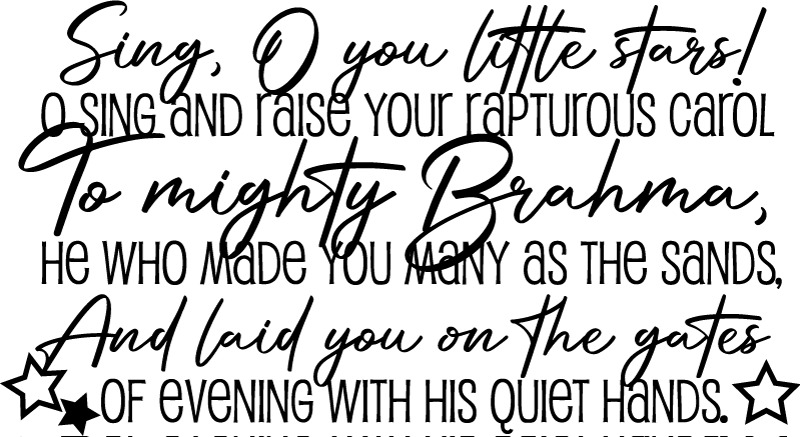 Sing, O you little stars!
O SING AND RAISE YOUR RAPTUROUS CAROL
To mighty Brahma,
HE WHO MADE YOU MANY AS THE SANDS,
And laid you on the gates
OF EVENING WITH HIS QUIET HANDS.